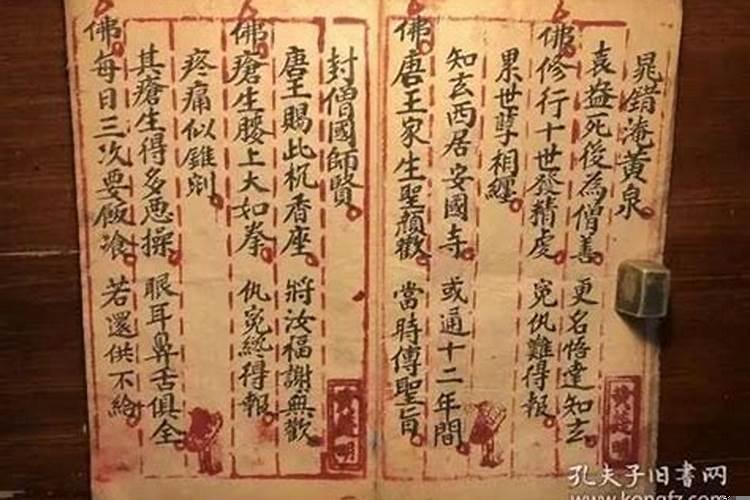 晁錯淹黄泉
袁盎死後為僧善 更名悟達知玄
佛修行十世發精虔 寃仇難得報
累世孽相纏
知玄西居安國寺 或通十二年間
佛唐王家生聖顏歡 當時傳聖旨
封僧國師賢
唐王賜此杌香座 將汝福謝無歡
佛瘡生腰上大如拳 仇寃終得報
疼痛似錐剜
其瘡生得多恶操 眼耳鼻舌俱全
佛每日三次要飯飡 若還供不給
孔夫子旧書网